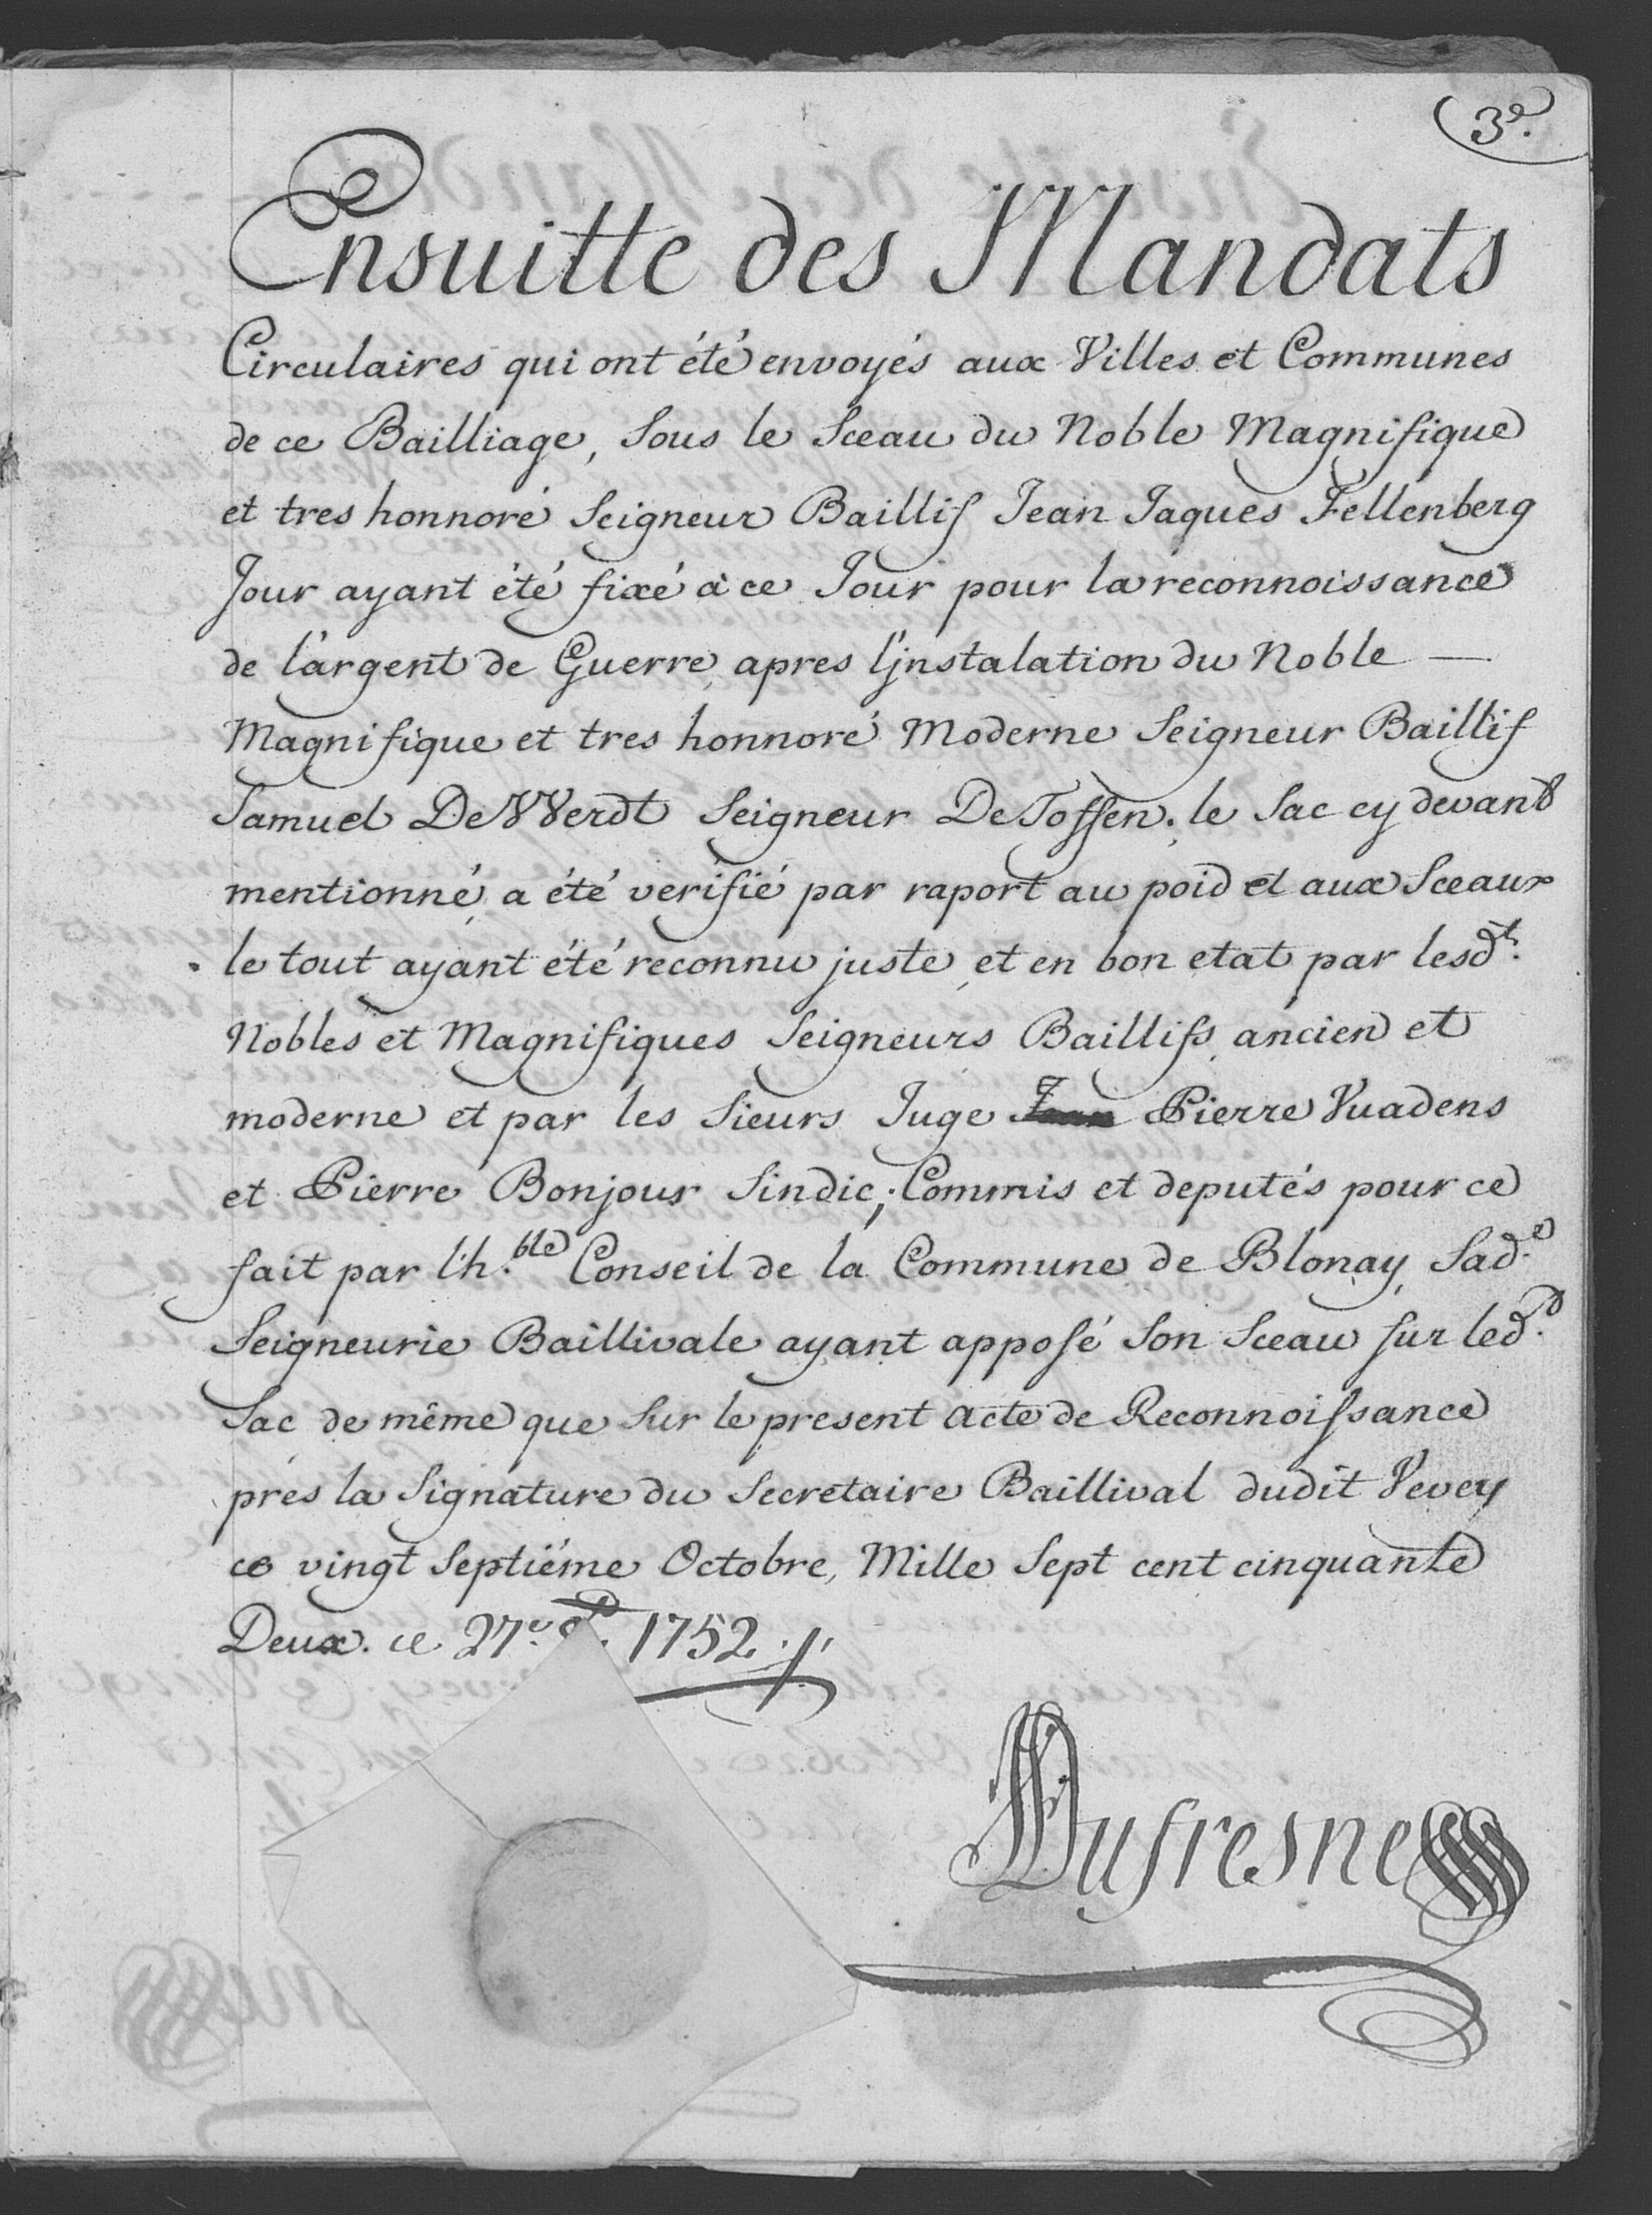 3e.
Ensuitte des Mandats
Circulaires qui ont été envoyés aux Villes et Communes
de ce Bailliage, Sous le Sceau du Noble Magnifique
et tres honnoré Seigneur Baillif Jean Jaques Fellenberg
Jour ayant été fixé à ce Jour pour la reconnoissance
de l'argent de Guerre, apres l'jnstalation du Noble —
Magnifique et tres honnoré Moderne Seigneur Baillif
Samuel De Werdt Seigneur De Toffen. le Sac cy devant
mentionné, a été verifié par raport au poid et aux Sceaux
le tout ayant été reconnu juste, et en bon etat par lesdt.
Nobles et Magnifiques Seigneurs Baillifs, ancien et
moderne et par les Sieurs Juge Pierre Vuadens
et Pierre Bonjour Sindic, Commis et deputés pour ce
fait par l'h.ble Conseil de la Commune de Blonay, Sad.e
Seigneurie Baillivale ayant apposé Son Sceau sur led.t
Sac de même que Sur le present acte de Reconnoissance
pres la Signature du Secretaire Baillival dudit Vevey
ce vingt Septiéme Octobre, Mille Sept cent cinquante
Deux. ce 27e. 1752.
Dufresne